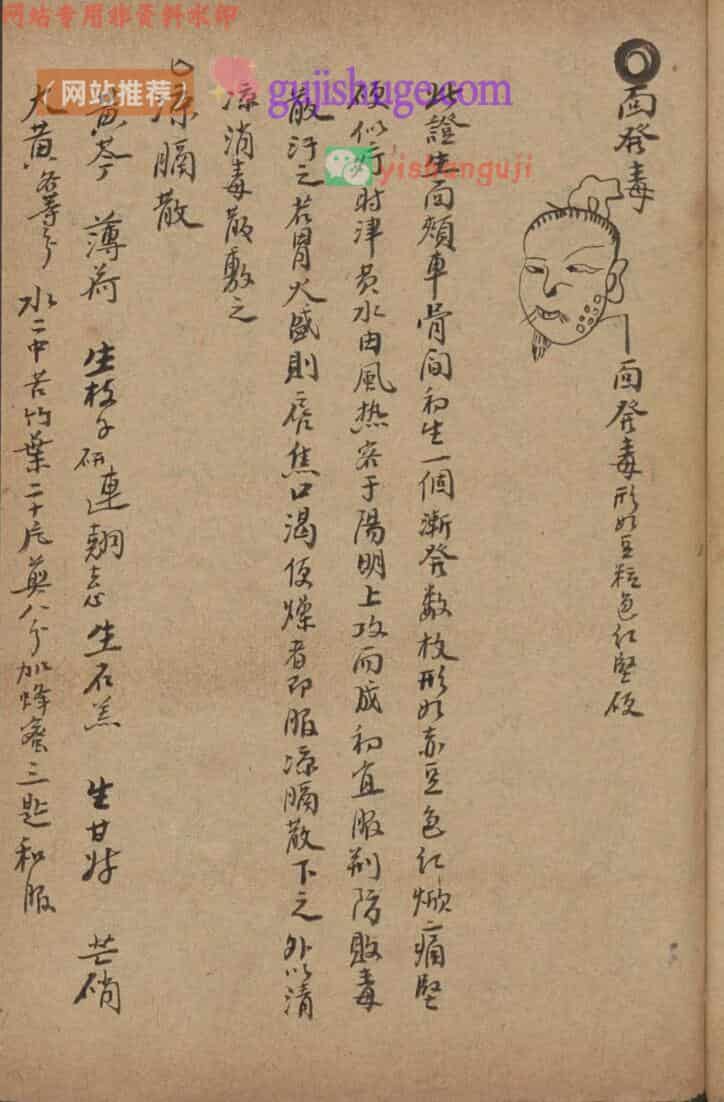 面發毒
面發毒形如豆粒色紅堅硬
此證生面頰車骨間初生一個漸發数枚形如赤豆色红焮痛堅
硬似疔时津黄水由風热客于陽明上攻而成初宜服荆防敗毒
散汗之若胃火盛則唇焦口渴便燥者即服凉膈散下之外以清
凉消毒散敷之
凉膈散
黄芩 薄荷 生枝子研 連翹去心 生石羔 生甘艸 芒硝
大黄各等分 水二中 苦竹葉二十片 煎八分加蜂蜜三匙和服
网站专用非资料水印
(网站推荐)
gujishuge.com
yishanguji